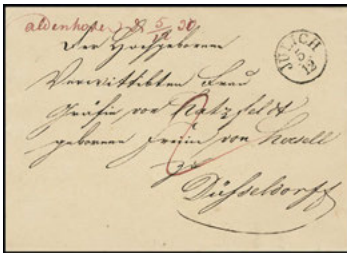 aldenhofen d 5/12 30
JÜLICH
5
12
Der Hochgebornen
Verwittibten Frau
Gräfin von Hatzfeldt
geborene Freiin von
zu
Düsseldorff